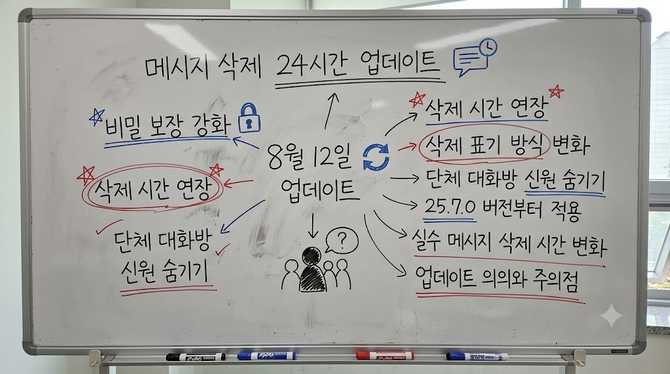 메시지 삭제 24시간 업데이트
비밀 보장 강화
삭제 시간 연장
단체 대화방
신원 숨기기
8월 12일
업데이트
?
삭제 시간 연장
삭제 표기 방식 변화
단체 대화방 신원 숨기기
25.7.0 버전부터 적용
실수 메시지 삭제 시간 변화
업데이트 의의와 주의점